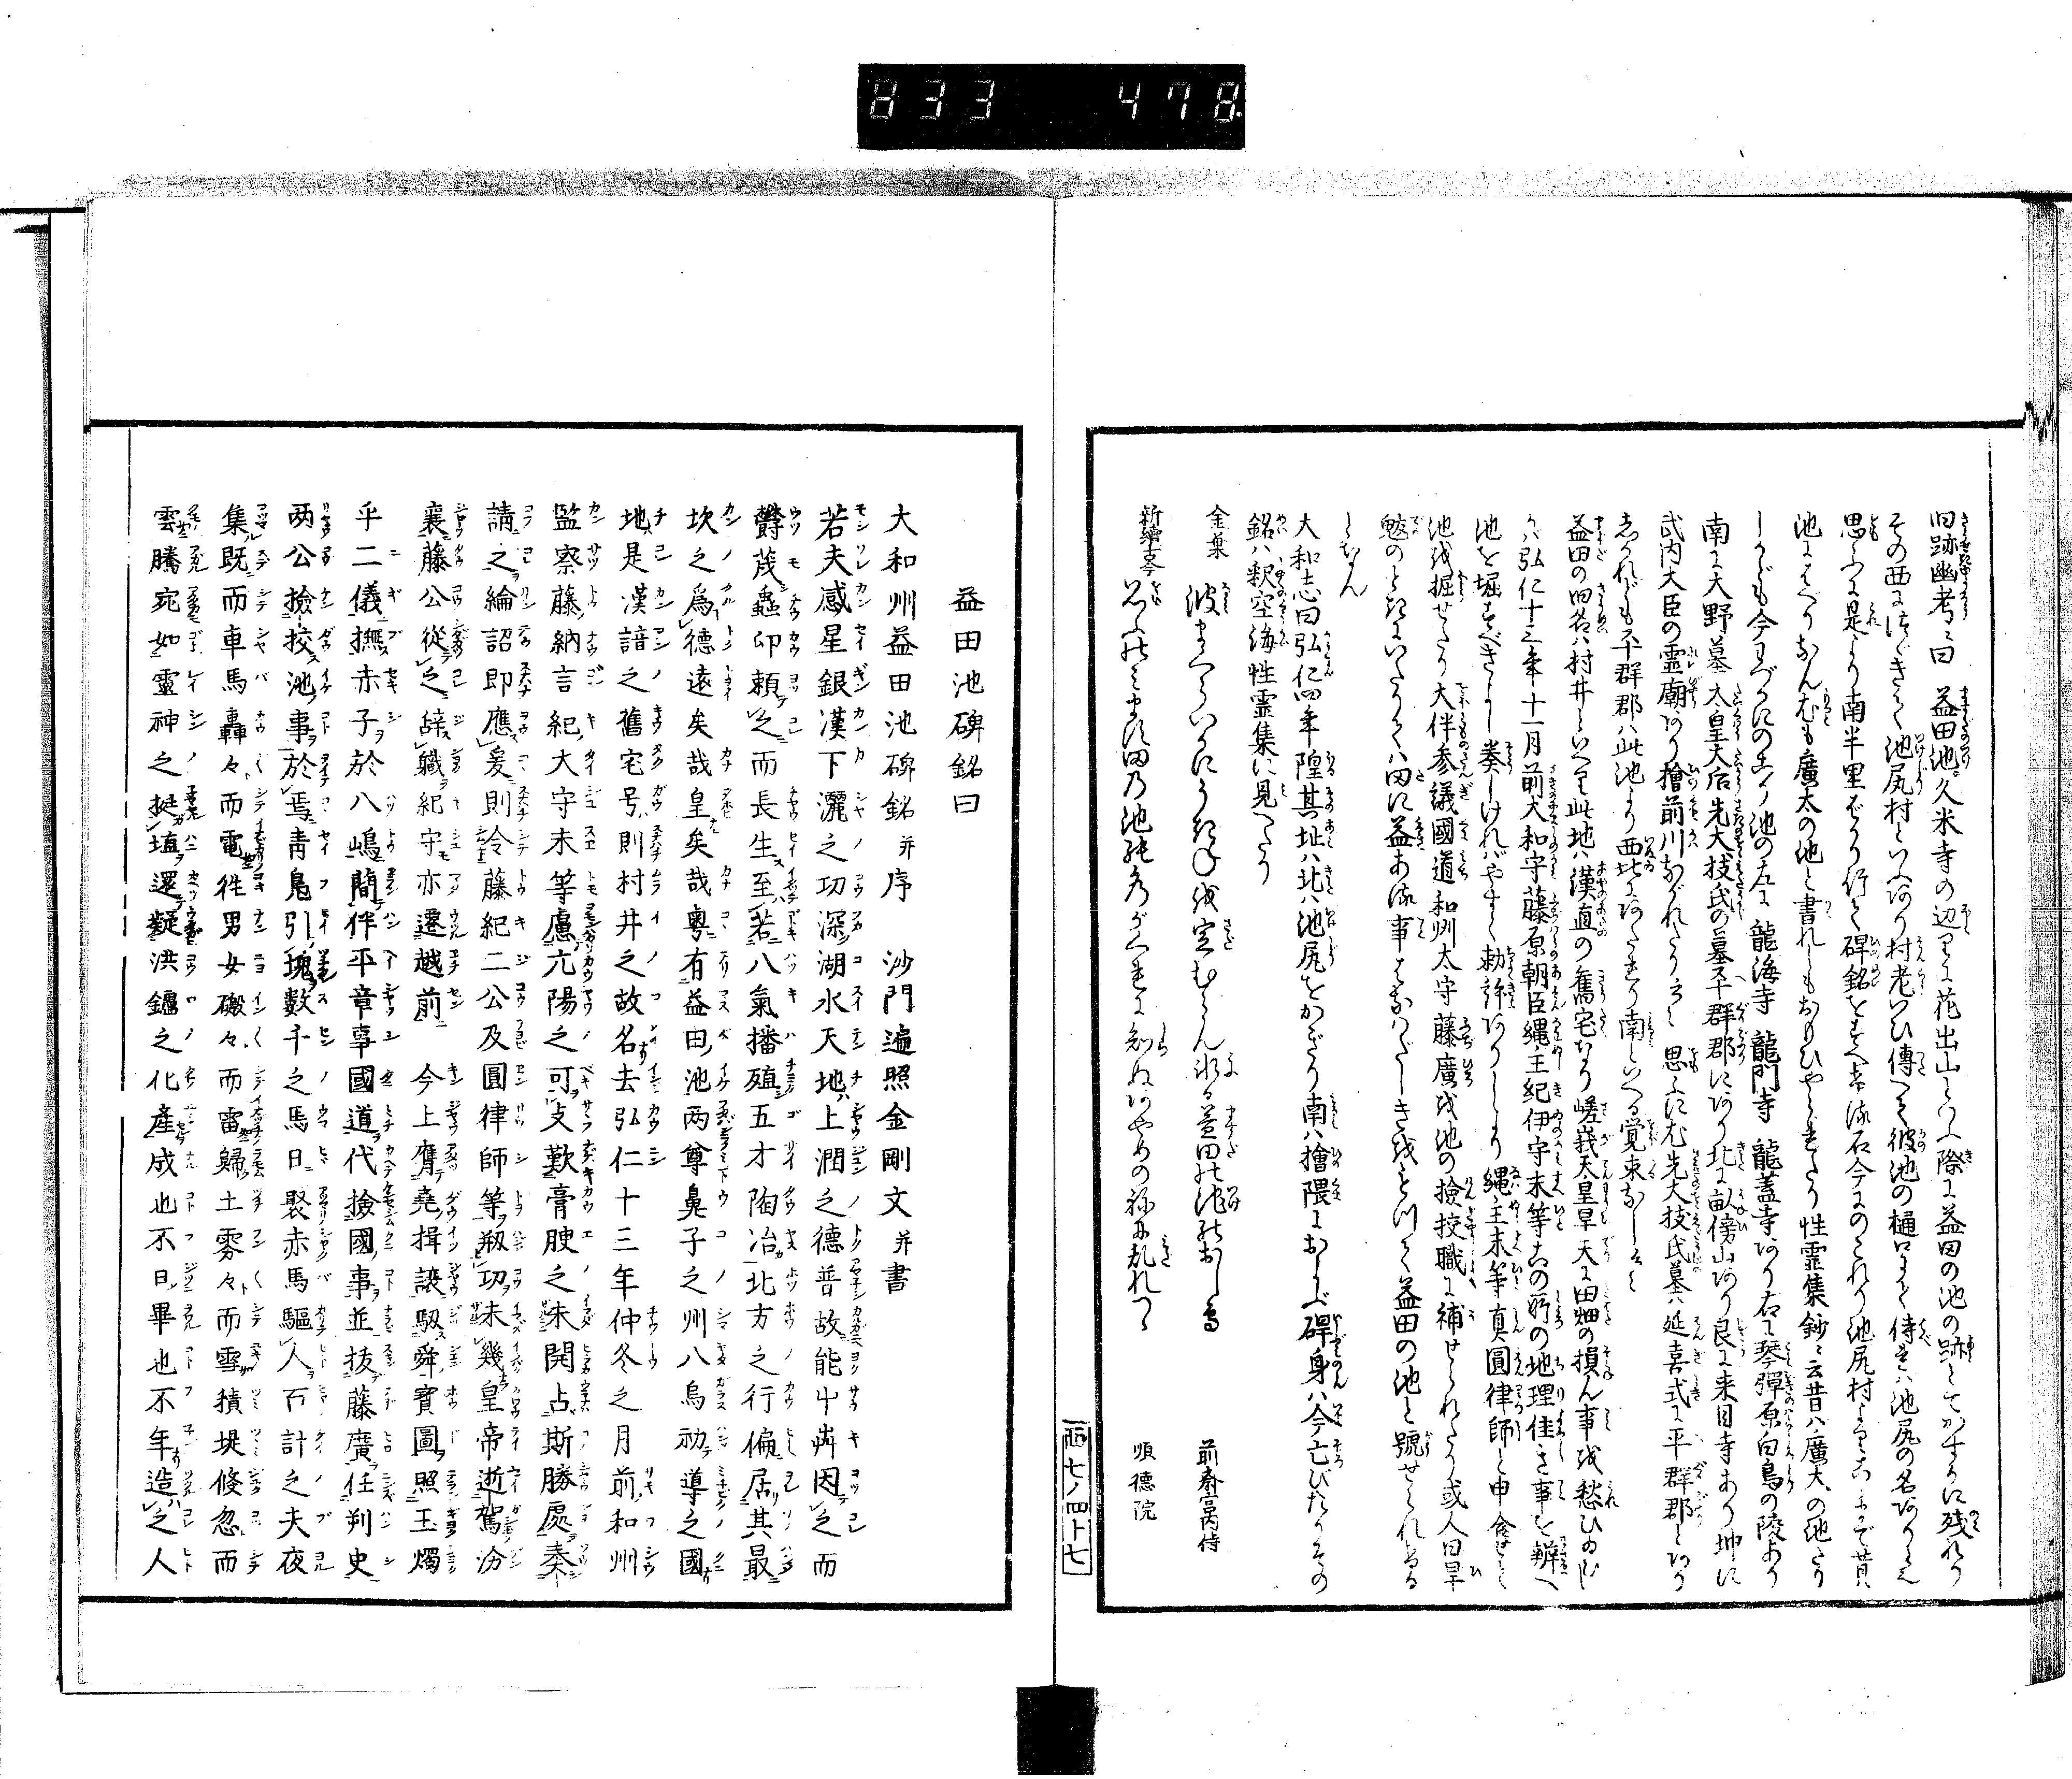 833 478
旧跡幽考ニ曰 益田池ハ久米寺の辺りに花出山といふ際に益田の池の跡とてかすかに残れり
その西につゞきて池尻村といふあり村老いひ傳へて彼池の樋口まで侍れバ池尻の名ありとぞ
思ふに是より南半里ばかり行て碑銘をすへける石今にのこれり池尻村よりこゝまで其
池にてありなんむも廣太の池と書れしもおもひやられたり性霊集鈔ニ云昔ハ廣大の池たり
しかども今わづかにのこり池の左に龍海寺龍門寺龍蓋寺あり右に琴彈原白鳥の陵あり
南に大野墓太皇大后先大枝氏の墓平群郡にあり北に畝傍山あり艮に来目寺あり坤に
武内大臣の霊廟あり檜前川ながれたりうんと思ふに先大枝氏墓ハ延喜式に平群郡とあり
しかれども平群郡ハ此池より西北にあたれり南といへる覚束なしとぞ
益田の旧名ハ村井といへり此地ハ漢直の舊宅なり嵯峩天皇旱天に田畑の損ん事を愁ひ給ひし
バ弘仁十三年十一月前大和守藤原朝臣縄主紀伊守末等此所の地理佳き事を辨へ
池を堀すべきよし奏しけれバやがて勅許ありしより縄主末等真圓律師と申合せて
池を掘せたり大伴参議國道和州太守藤廣を池の撿挍職に補せられたり或人曰旱
魃のときにいたりてハ田に益ある事はなはだしきをとつて益田の池と號せられける
となん
大和志曰弘仁四年隍其址ハ北ハ池尻をかぎり南ハ檜隈におよぶ碑身ハ今亡びたりその
銘ハ釈空海性霊集に見へたり
金葉 波まくらいかにうきねを定むらん氷る益田の池のおし鳥 前斎宮内侍
新續古今 思ふのミます田の池のあやめの 乱れつゝ 順徳院
酉七ノ四十七
益田池碑銘曰
大和州益田池碑銘并序 沙門遍照金剛文并書
若夫感星銀漢下灑之功深湖水天地上潤之德普故能屮卉因之而
欝茂蟲卵頼之而長生至若八氣播殖五才陶冶北方之行偏居其最
坎之爲德遠矣哉皇矣哉粤有益田池兩尊鼻子之州八烏初導之國
地是漢諳之舊宅号則村井之故名去弘仁十三年仲冬之月前和州
監察藤納言紀大守末等慮亢陽之可支歎膏腴之未開占斯勝處奏
請之綸詔即應爰則令藤紀二公及圓律師等剏功未幾皇帝逝駕汾
襄藤公從之辭職紀守亦遷越前 今上膺堯揖讓馭舜寶圖照玉燭
乎二儀撫赤子於八嶋簡伴平章事國道代撿國事並抜藤廣任判史
兩公撿挍池事於焉青鳬引塊數千之馬日聚赤馬驅人百計之夫夜
集既而車馬轟々而電徃男女磤々而雷歸土雰々而雪積堤倏忽而
雲騰宛如靈神之挻埴還疑洪鑪之化產成也不日畢也不年造之人